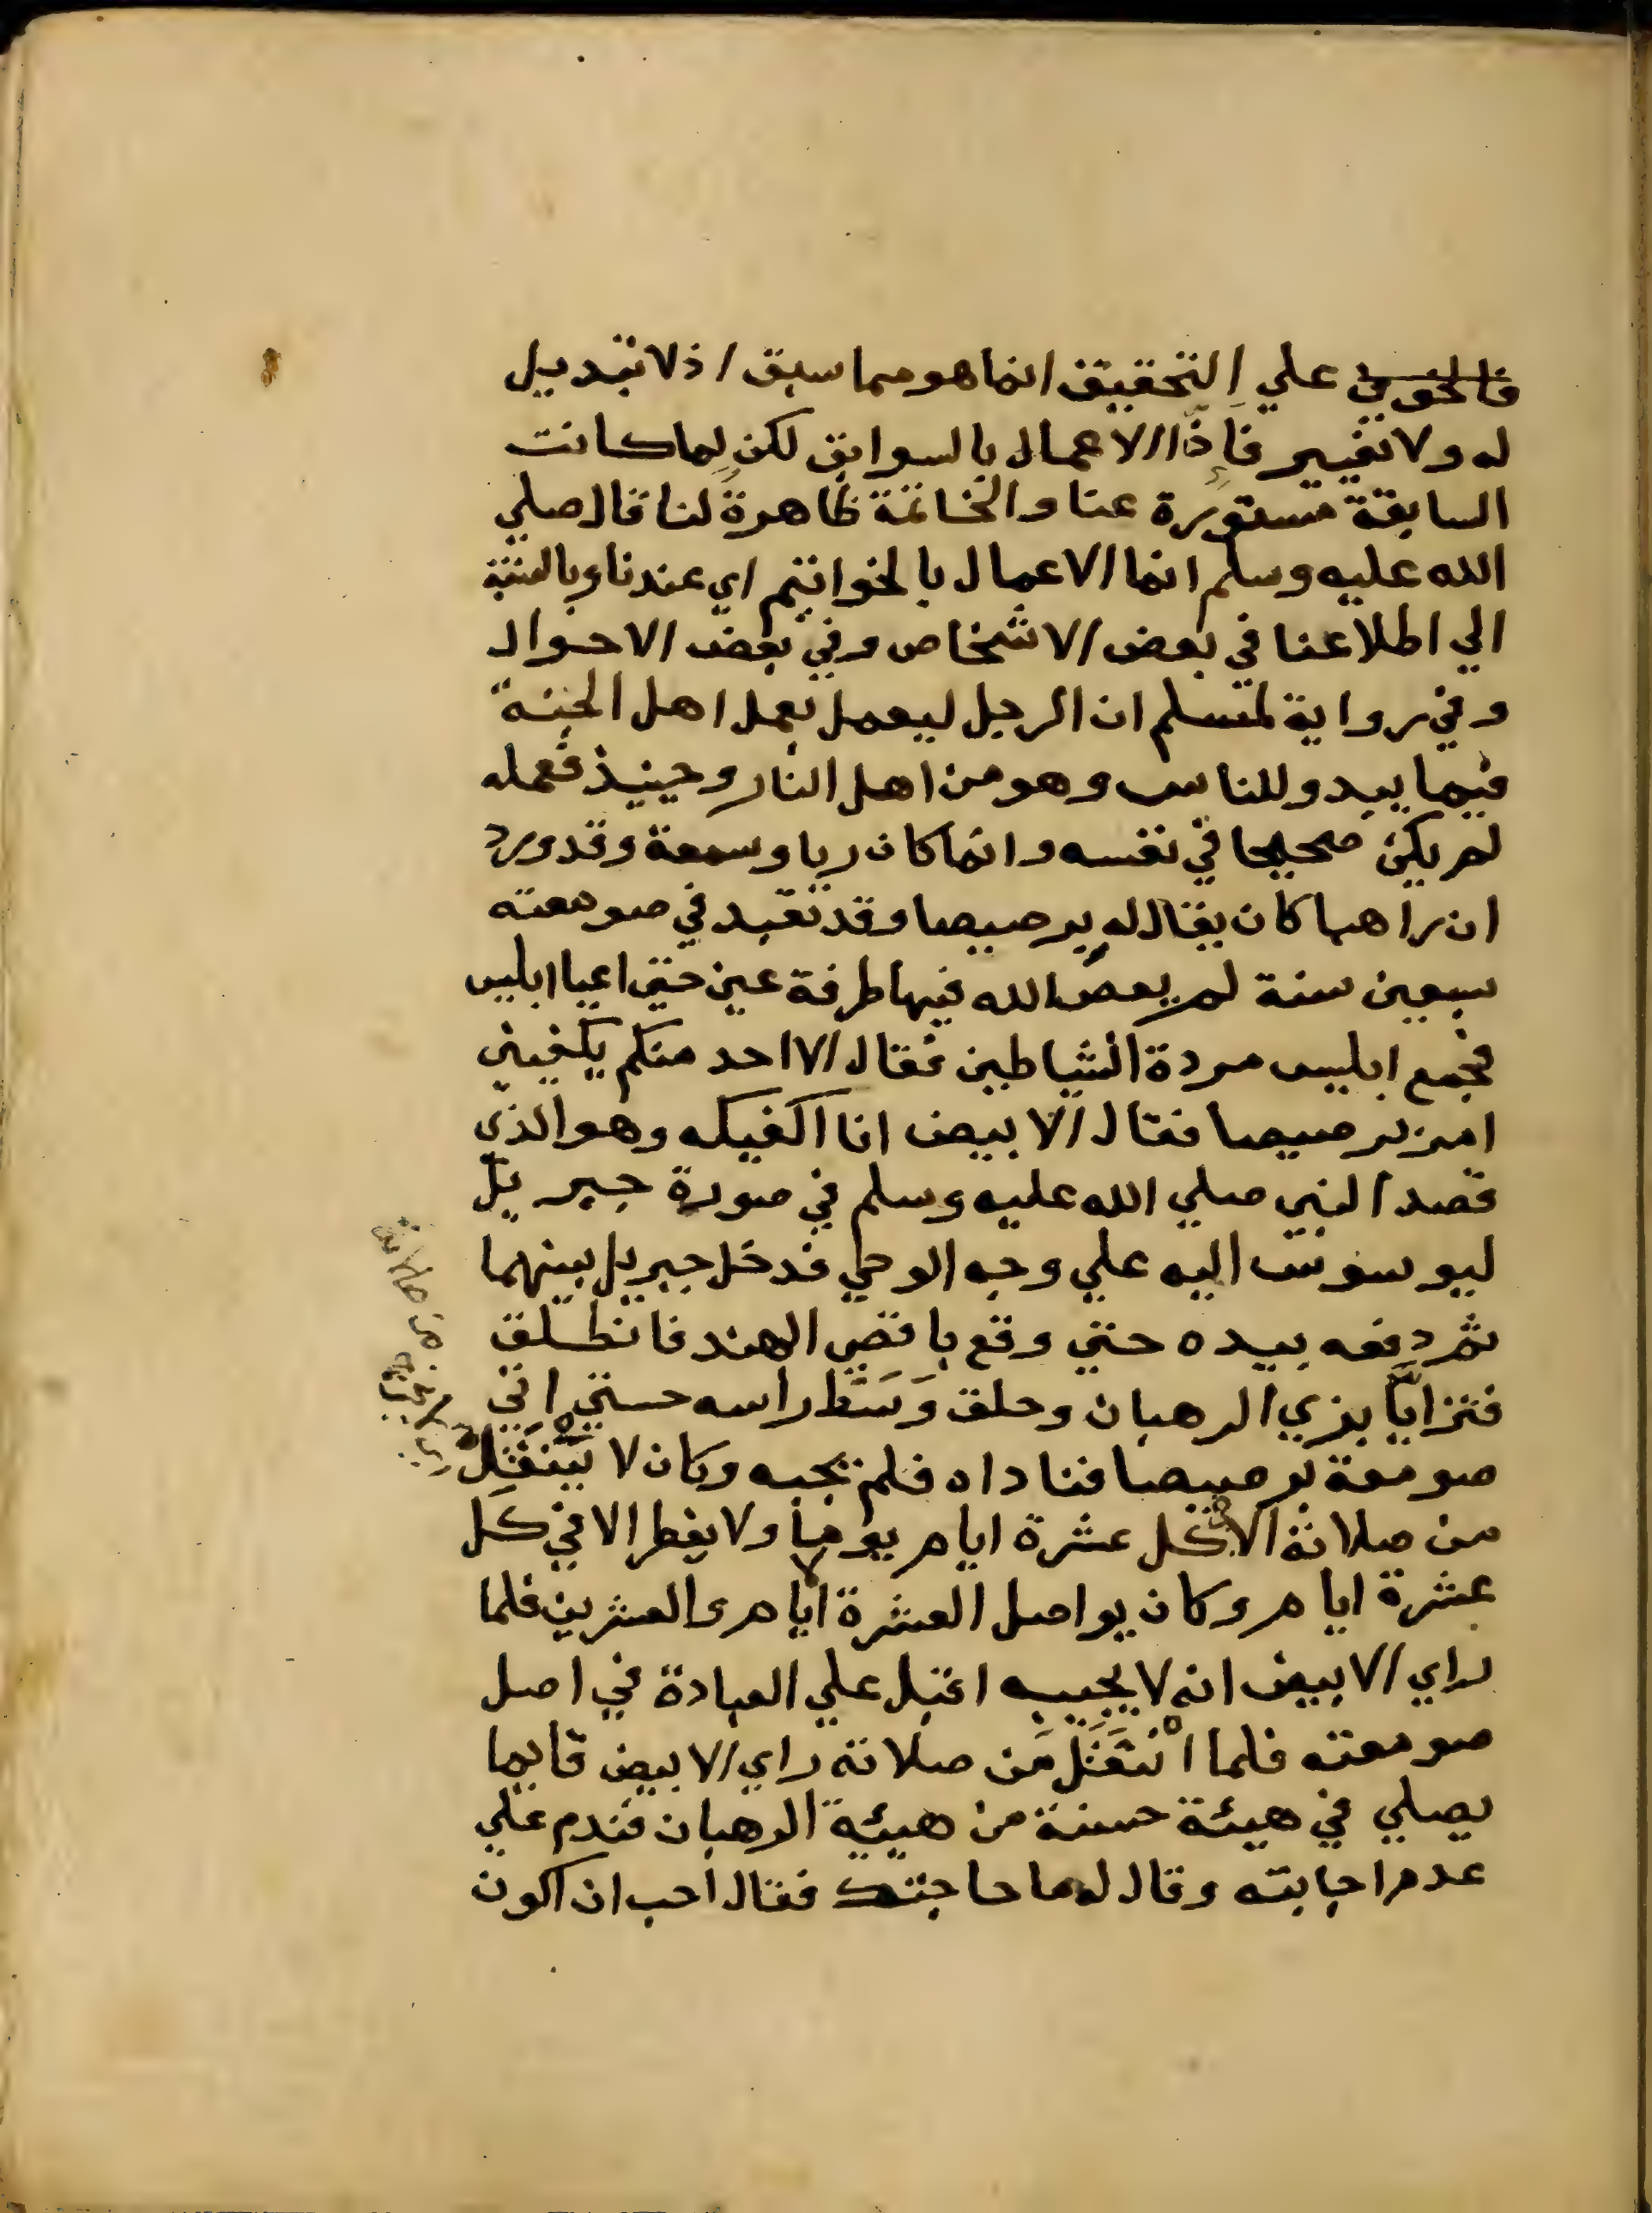 فالخوف علي التحقيق انما هو مما سبق اذ لا تبديل
له ولا تغيير فاذا الاعمال بالسوابق لكن لما كانت
السابقة مستورة عنا والخاتمة ظاهرة لنا قال صلي
الله عليه وسلم انما الاعمال بالخواتيم اي عندنا وبالنسبة
الي اطلاعنا في بعض الاشخاص وفي بعض الاحوال
وفي رواية لمسلم ان الرجل ليعمل بعمل اهل الجنة
فيما يبدو للناس وهو من اهل النار وحينيذ فعمله
لم يكن صحيحا في نفسه وانما كان ريا وسمعة وقد ورد
ان راهبا كان يقال له برصيصا وقد تعبد في صومعته
سبعين سنة لم يعص الله فيها طرفة عين حتي اعيا ابليس
فجمع ابليس مردة الشياطين فقال الا احد منكم يكفيني
امر برصيصا فقال الابيض انا اكفيكه وهو الذي
قصد النبي صلي الله عليه وسلم في صورة جبريل
ليوسوس اليه علي وجه الوحي فدخل جبريل بينهما
ثم دفعه بيده حتي وقع باقصي الهند فانطلق
فتزايا بزي الرهبان وحلق وَسَط راسه حتي اتي
صومعة برصيصا فناداه فلم يجبه وكان لا يَنْفَتِل
من صلاته الا في كل عشرة ايام يوما ولا يفطر الا في كل
عشرة ايام وكان يواصل العشرة ايام والعشرين فلما
راي الابيض انه لا يجيبه اقبل علي العبادة في اصل
صومعته فلما انْفَتَلَ من صلاته راي الابيض قايما
يصلي في هيئة حسنة من هيئة الرهبان فندم علي
عدم اجابته وقال له ما حاجتك فقال احب ان اكون